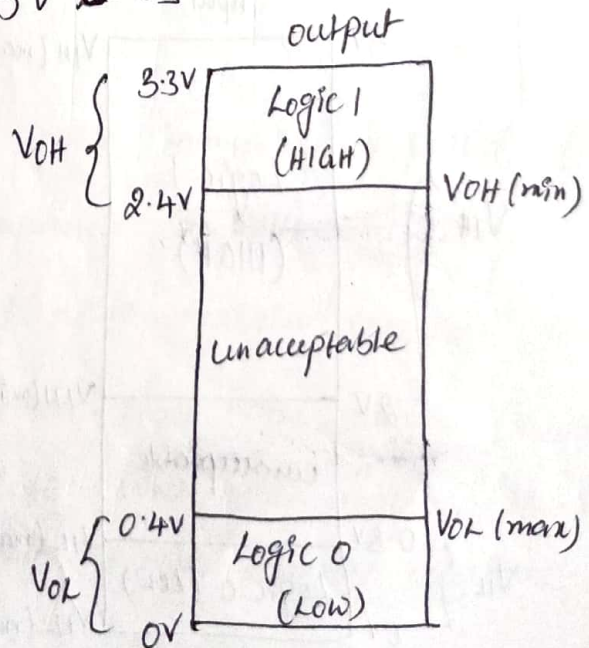 output
3.3V
Logic 1
(HIGH)
VOH
2.4V
VOH (min)
unacceptable
0.4V
VOL (max)
Logic 0
(LOW)
VOL
0V